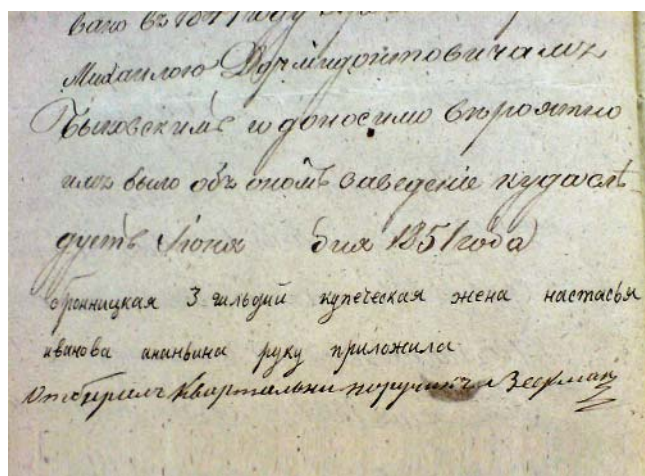 вано въ 1847 году
Михаилою Дормидонтовичамъ
Быковскимъ и доносимо вѣроятно
имъ было объ ономъ заведение куда слѣ-
дуетъ Июня дня 1851 года
бронницкая 3 гильдий купеческая жена настасья
иванова ананьина руку приложила
Отбиралъ Квартальни поручикъ